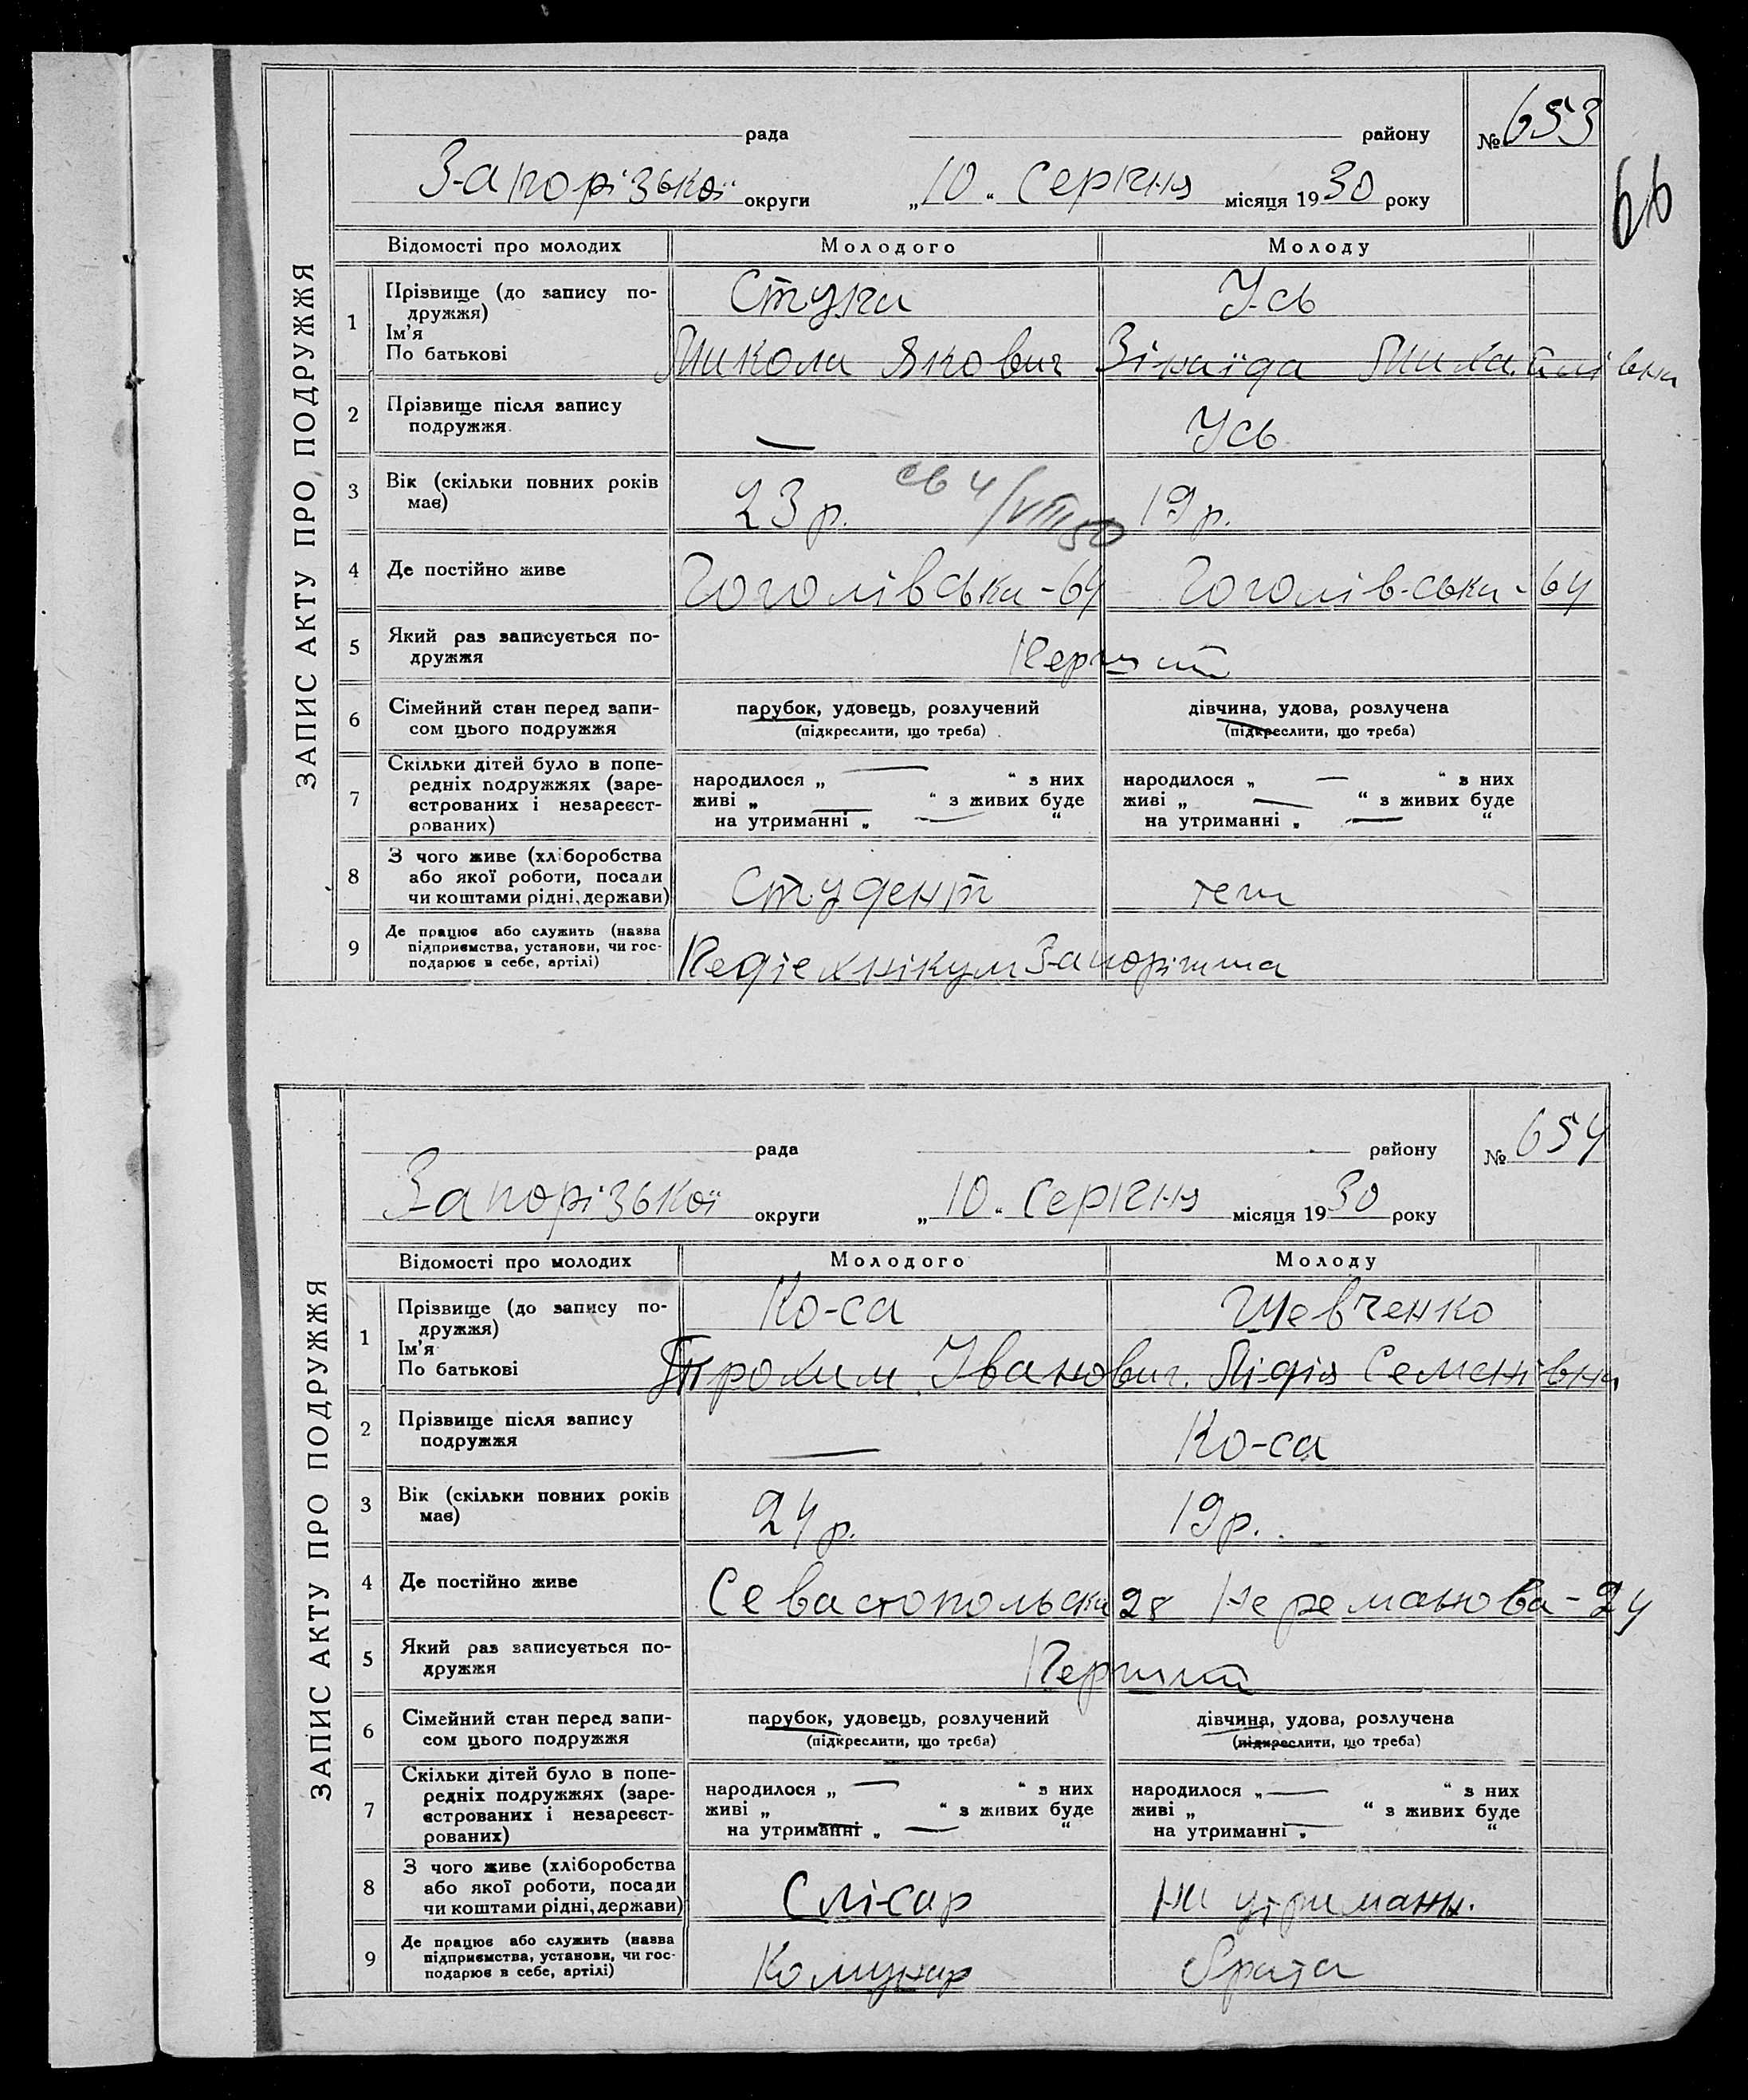 ЗАПИС АКТУ ПРО ПОДРУЖЖЯ
рада району № 653
Запорізької округи „10“ Серпня місяця 1930 року
66
Відомості про молодих Молодого Молоду
1 Прізвище (до запису по-
дружжя)
Ім'я
По батькові
Стука Усь
Микола Якович Зінаїда Михайлівна
2 Прізвище після запису
подружжя.
— Усь
3 Вік (скільки повних років
має)
23 р. св 4/VIII 50 19 р.
4 Де постійно живе
Гоголівська-64 Гоголівська-64
5 Який раз записується по-
дружжя
Перший
6 Сімейний стан перед запи-
сом цього подружжя
парубок, удовець, розлучений дівчина, удова, розлучена
(підкреслити, що треба) (підкреслити, що треба)
7 Скільки дітей було в попе-
редніх подружжях (заре-
єстрованих і незареєст-
рованих)
народилося „ — “ з них народилося „ — “ з них
живі „ — “ з живих буде живі „ — “ з живих буде
на утриманні „ — “ на утриманні „ — “
8 З чого живе (хліборобства
або якої роботи, посади
чи коштами рідні, держави)
Студент теж
9 Де працює або служить (назва
підприємства, установи, чи гос-
подарює в себе, артілі)
Педтехнікум Запоріжжа
ЗАПИС АКТУ ПРО ПОДРУЖЖЯ
рада району № 654
Запорізької округи „10“ Серпня місяця 1930 року
Відомості про молодих Молодого Молоду
1 Прізвище (до запису по-
дружжя)
Ім'я
По батькові
Ко-са Шевченко
Трохим Іванович. Лідія Семенівна
2 Прізвище після запису
подружжя
— Ко-са
3 Вік (скільки повних років
має)
24 р. 19 р.
4 Де постійно живе
Севастопольська 28 24
5 Який раз записується по-
дружжя
Перший
6 Сімейний стан перед запи-
сом цього подружжя
парубок, удовець, розлучений дівчина, удова, розлучена
(підкреслити, що треба) (підкреслити, що треба)
7 Скільки дітей було в попе-
редніх подружжях (заре-
єстрованих і незареєст-
рованих)
народилося „ — “ з них народилося „ — “ з них
живі „ “ з живих буде живі „ “ з живих буде
на утриманні „ — “ на утриманні „ — “
8 З чого живе (хліборобства
або якої роботи, посади
чи коштами рідні, держави)
Слісар На утриманн.
9 Де працює або служить (назва
підприємства, установи, чи гос-
подарює в себе, артілі)
Комунар брата